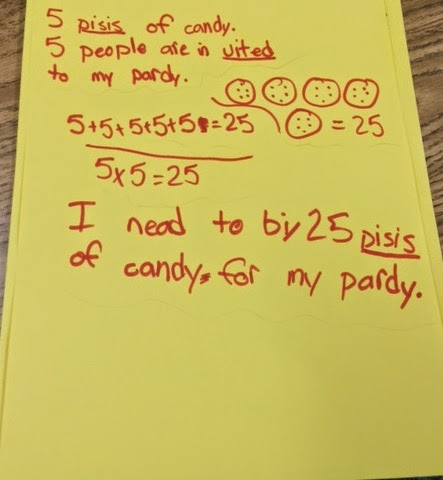 5 pisis of candy.
5 people are in uited
to my pardy.
5+5+5+5+5=25
= 25
5x5=25
I nead to biy 25 pisis
of candy for my pardy.